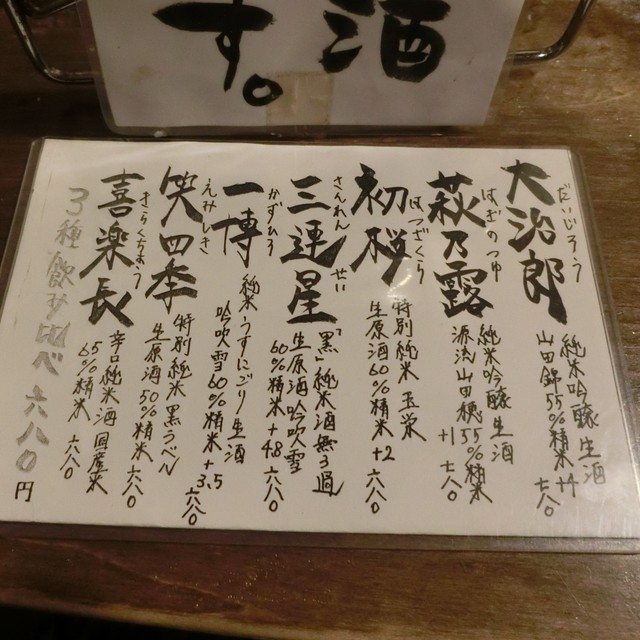 酒
す。
大治郎
だいじろう
純米吟醸生酒
山田錦55%精米+4
七八〇
萩乃露
はぎのつゆ
純米吟醸生酒
源流山田穂55%精米
+1 七八〇
初桜
はつざくら
特別純米 玉栄
生原酒60%精米+2 六八〇
三連星
さんれんせい
「黒」純米酒無ろ過
生原酒吟吹雪
60%精米+4.8 六八〇
一博
かずひろ
純米うすにごり生酒
吟吹雪60%精米+3.5
六八〇
笑四季
えみしき
特別純米 黒ラベル
生原酒50%精米 六八〇
喜楽長
きらくちょう
辛口純米酒 国産米
65%精米 六八〇
3種飲み比べ 六八〇円